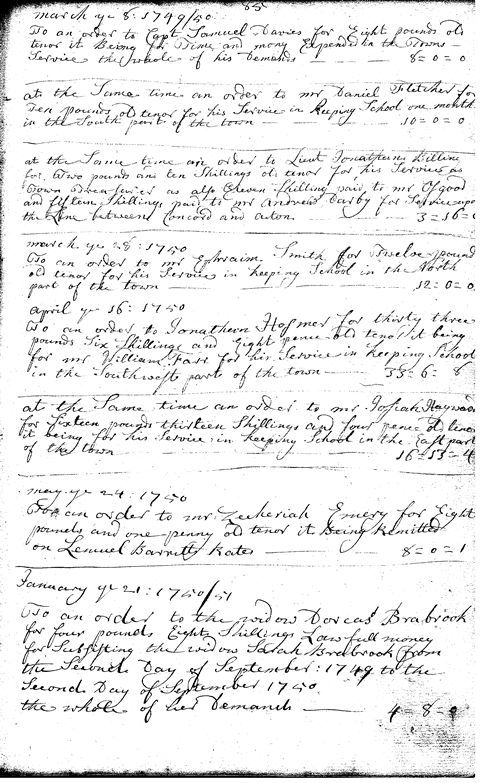 85
march ye 8: 1749/50
To an order to Capt. Samuel Davies for Eight pounds old
tenor it Being for Time and mony Expended in the Towns
Service the whole of his Demands 8=0=0
at the Same time an order to mr Daniel Fletcher for
Ten pounds old tenor for his Service in keeping School one month
in the South part of the town 10=0=0
at the Same time an order to Lieut Jonathan Billing
for two pounds and ten Shillings old tenor for his Service as
Town Treasurer as also Eleven Shilling paid to mr Osgood
and fifteen Shillings paid to mr Andrew Darby for Service upo
the Line between Concord and acton 3=16=0
march ye 28: 1750
To an order to mr Ephraim Smith for Twelve pound
old tenor for his Service in keeping School in the North
part of the town 12=0=0
april ye 16: 1750
To an order to Jonathan Hosmer for thirty three
pounds Six Shillings and Eight pence old tenor it being
for mr William Farr for his Service in keeping School
in the Southwest part of the town 33=6=8
at the Same time an order to mr Josiah Haywar
for Sixteen pounds thirteen Shillings and four pence old tenor
it being for his Service in keeping School in the East part
of the town 16=13=4
may ye 24: 1750
To an order to mr Zecheriah Emery for Eight
pounds and one penny old tenor it Being Remitted
on Lemuel Barritts Rates 8=0=1
January ye 21: 1750/51
To an order to the widow Dorcas Brabrook
for four pounds Eight Shillings Lawfull money
for Subsisting the widow Sarah Brabrook from
the Second Day of September: 1749 to the
Second Day of September 1750
the whole of her Demands 4=8=0